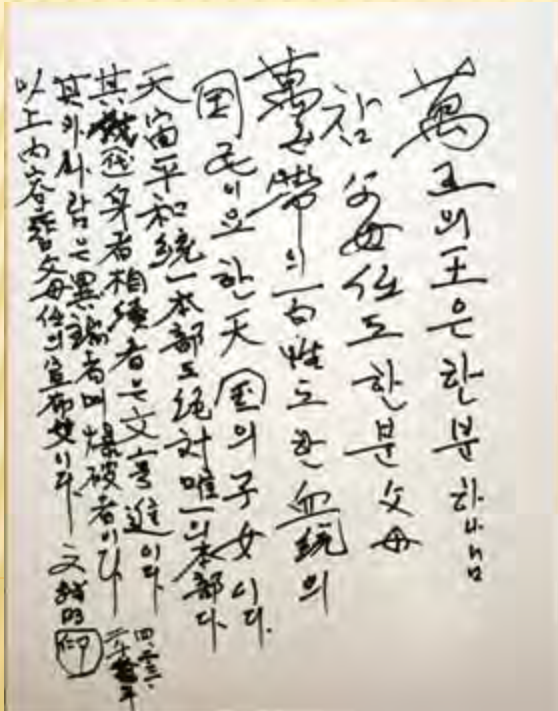 萬王의王은한분하나님
참父母任도한분父母
萬世帶의百性도한血統의
国民이요한天国의子女이다.
天宙平和統一本部도絶対唯一의本部다.
其代身者相續者는文亨進이다.
其外사람은異端者며爆破者이다
以上內容은父母任의宣布文이다 文鮮明
印
四.二三.
二千十年